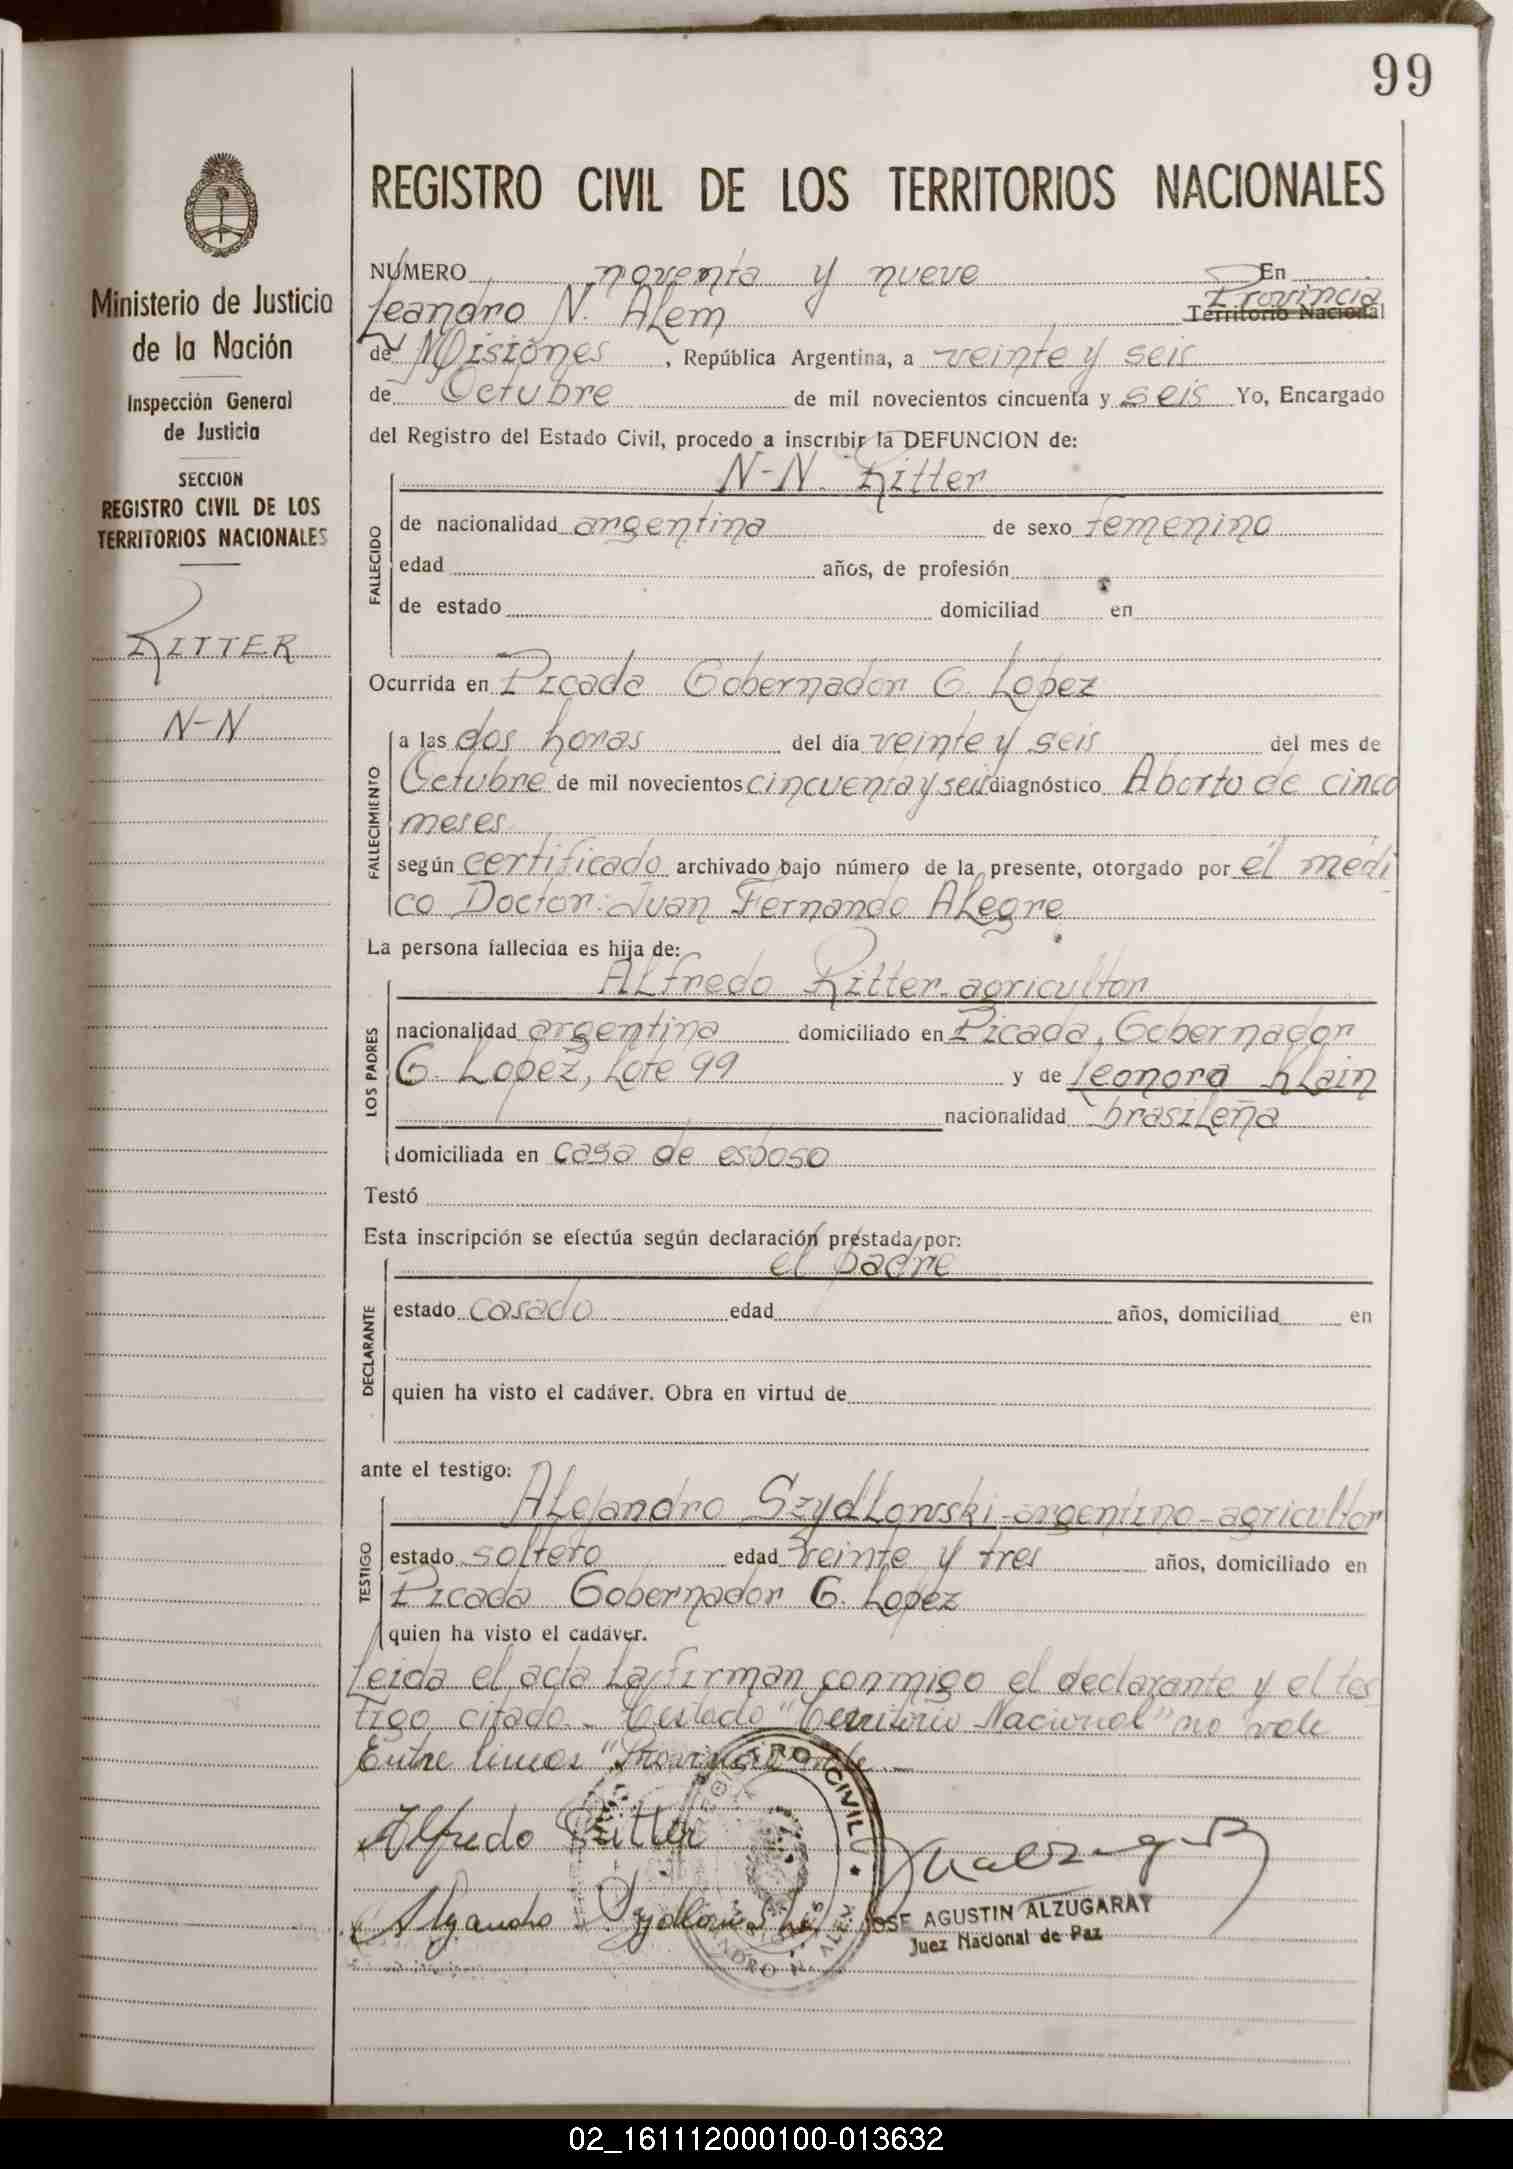 99
REGISTRO CIVIL DE LOS TERRITORIOS NACIONALES
Ministerio de Justicia
de la Nación
Inspección General
de Justicia
SECCION
REGISTRO CIVIL DE LOS
TERRITORIOS NACIONALES
RITTER
N-N
NUMERO noventa y nueve En
Leandro N. Alem Provincia Territorio Nacional
de Misiones, República Argentina, a veinte y seis
de Octubre de mil novecientos cincuenta y seis Yo, Encargado
del Registro del Estado Civil, procedo a inscribir la DEFUNCION de:
N-N. Ritter
FALLECIDO
de nacionalidad argentina de sexo femenino
edad años, de profesión
de estado domiciliad en
Ocurrida en Picada Gobernador G. López
FALLECIMIENTO
a las dos horas del día veinte y seis del mes de
Octubre de mil novecientos cincuenta y seis diagnóstico Aborto de cinco
meses
según certificado archivado bajo número de la presente, otorgado por el médi
co Doctor: Juan Fernando Alegre
La persona fallecida es hija de:
Alfredo Ritter-agricultor
LOS PADRES
nacionalidad argentina domiciliado en Picada, Gobernador
G. Lopez, Lote 99 y de Leonora Klain
nacionalidad brasileña
domiciliada en casa de esposo
Testó
Esta inscripción se efectúa según declaración prestada por:
el padre
DECLARANTE
estado casado edad años, domiciliad en
quien ha visto el cadáver. Obra en virtud de
ante el testigo:
Alejandro Szydlowski-argentino-agricultor
TESTIGO
estado soltero edad veinte y tres años, domiciliado en
Picada Gobernador G. Lopez
quien ha visto el cadáver.
Leida el acta la firman conmigo el declarante y el tes
tigo citado.- Testado "Territorio Nacional" no vale
Entre lineas "Provincia" vale.-
Alfredo Ritter
REGISTRO CIVIL
Alejandro Szydlowski
JOSE AGUSTIN ALZUGARAY
Juez Nacional de Paz
02_161112000100-013632